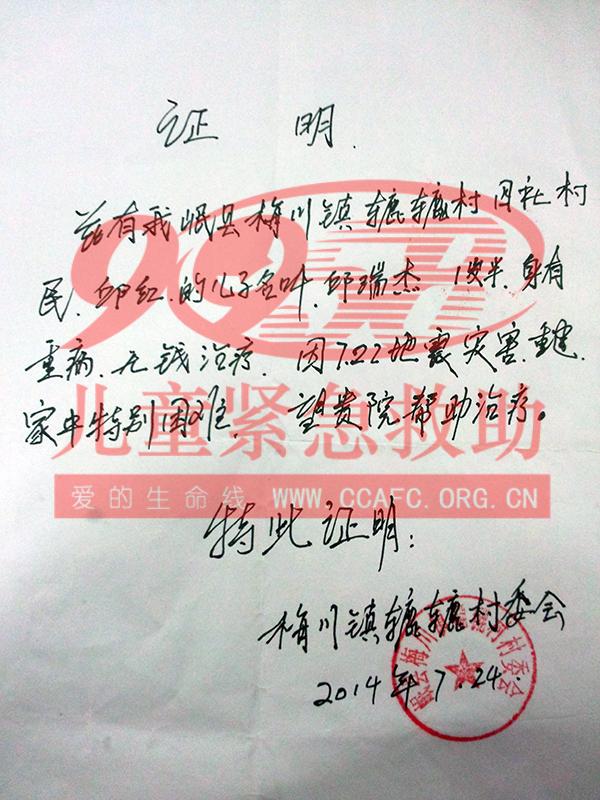 证 明
兹有我岷县梅川镇辘辘村 社村
民.邱红.的儿子名叶.邱瑞杰 1岁半.身有
重病.无钱治疗.因7.22地震灾害.重建.
家中特别困难.望贵院帮助治疗。
特此证明:
梅川镇辘辘村委会
2014年7.24.
9958
儿童紧急救助
爱的生命线 WWW.CCAFC.ORG.CN
梅川 村委会